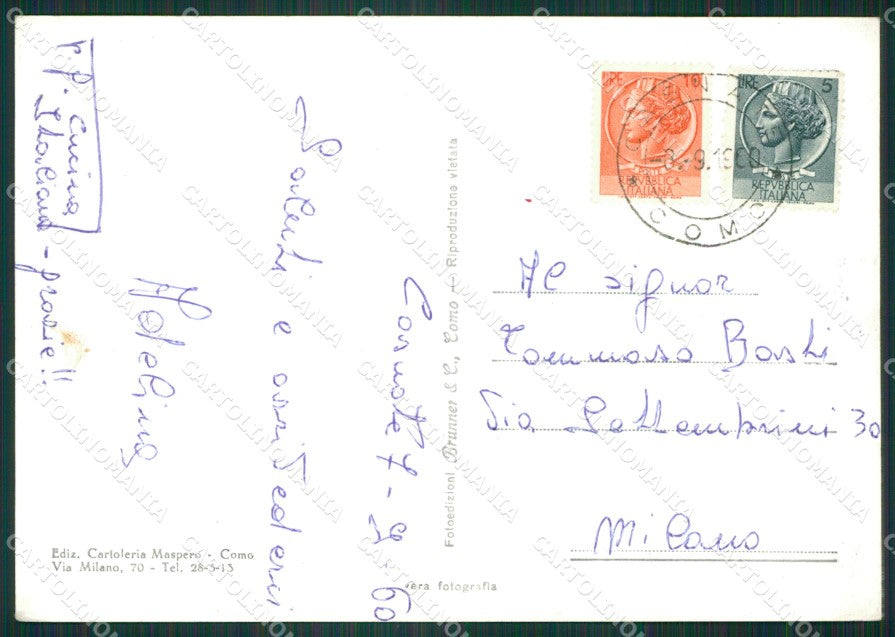 LIRE 10
REPVBBLICA
ITALIANA
LIRE 5
REPVBBLICA
ITALIANA
-8.-9.1960
COMO
Al signor
Tommaso Boshi
Via Settembrini 30
Milano
Cosnate 7-9 60
Saluti e arrivederci
Adelina
r p. cucina
italiana - grazie!!
Fotoedizioni Brunner & C., Como — Riproduzione vietata
vera fotografia
Ediz. Cartoleria Maspero - Como
Via Milano, 70 - Tel. 28-3-13
CARTOLINOMANIA